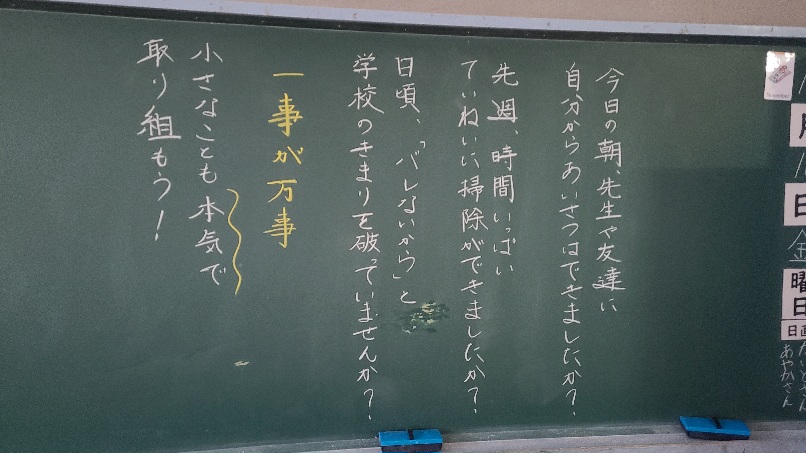 今日の朝、先生や友達に
自分からあいさつはできましたか？
先週、時間いっぱい
ていねいに掃除ができましたか？
日頃、「バレないから」と
学校のきまりを破っていませんか？
一事が万事
小さなことも本気で
取り組もう！
月
日
金
曜日
日直
あやかさん